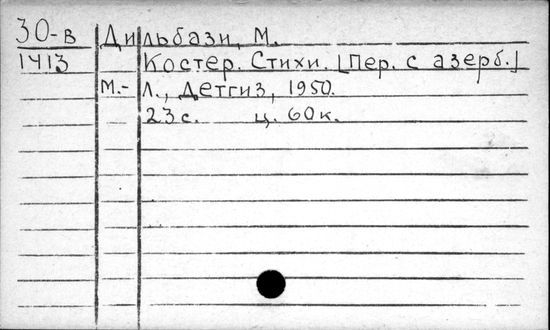 30-в Дильбази, М.
1413 Костер. Стихи. [Пер. с азерб.]
М.-Л., Детгиз, 1950.
23 с. ц. 60 к.